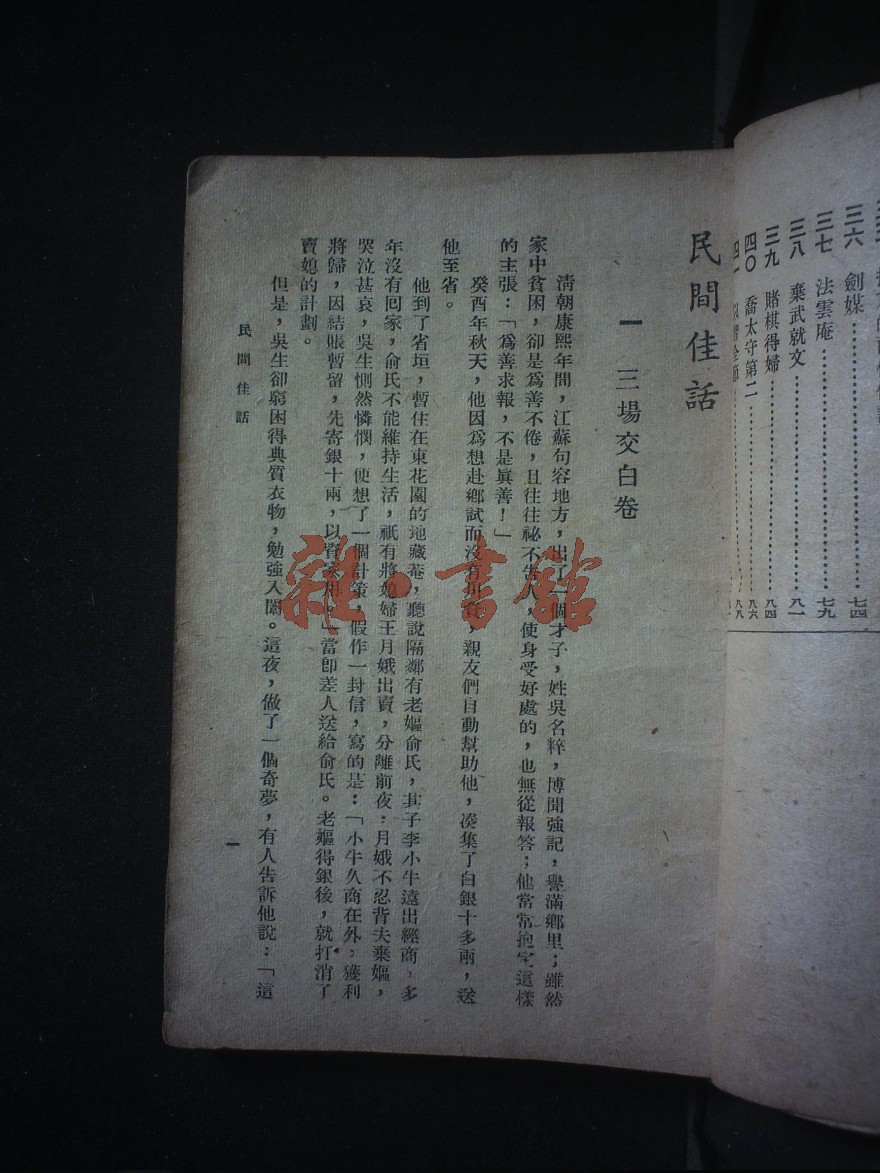 三六 劍媒……七四
三七 法雲庵……七九
三八 棄武就文……八一
三九 賭棋得婦……八四
四〇 喬太守第二……八六
民間佳話
一 三場交白卷
淸朝康熙年間，江蘇句容地方，出了一個才子，姓吳名粹，博聞強記，譽滿鄉里；雖然
家中貧困，卻是爲善不倦，且往往祕不告人，使身受好處的，也無從報答；他常常抱定這樣
的主張：「爲善求報，不是眞善！」
癸酉年秋天，他因爲想赴鄉試而沒有川資，親友們自動幫助他，湊集了白銀十多兩，送
他至省。
他到了省垣，暫住在東花園的地藏菴，聽說隔鄰有老嫗俞氏，其子李小牛遠出經商，多
年沒有囘家，俞氏不能維持生活，祇有將媳婦王月娥出賣，分離前夜，月娥不忍背夫棄嫗，
哭泣甚哀，吳生惻然憐憫，便想了一個計策，假作一封信，寫的是：「小牛久商在外，獲利
將歸，因結賬暫留，先寄銀十兩，以資家用。」當卽差人送給俞氏。老嫗得銀後，就打消了
賣媳的計劃。
但是，吳生卻窮困得典質衣物，勉強入闈。這夜，做了一個奇夢，有人吿訴他說：「這
民間佳話
一
雜·書館